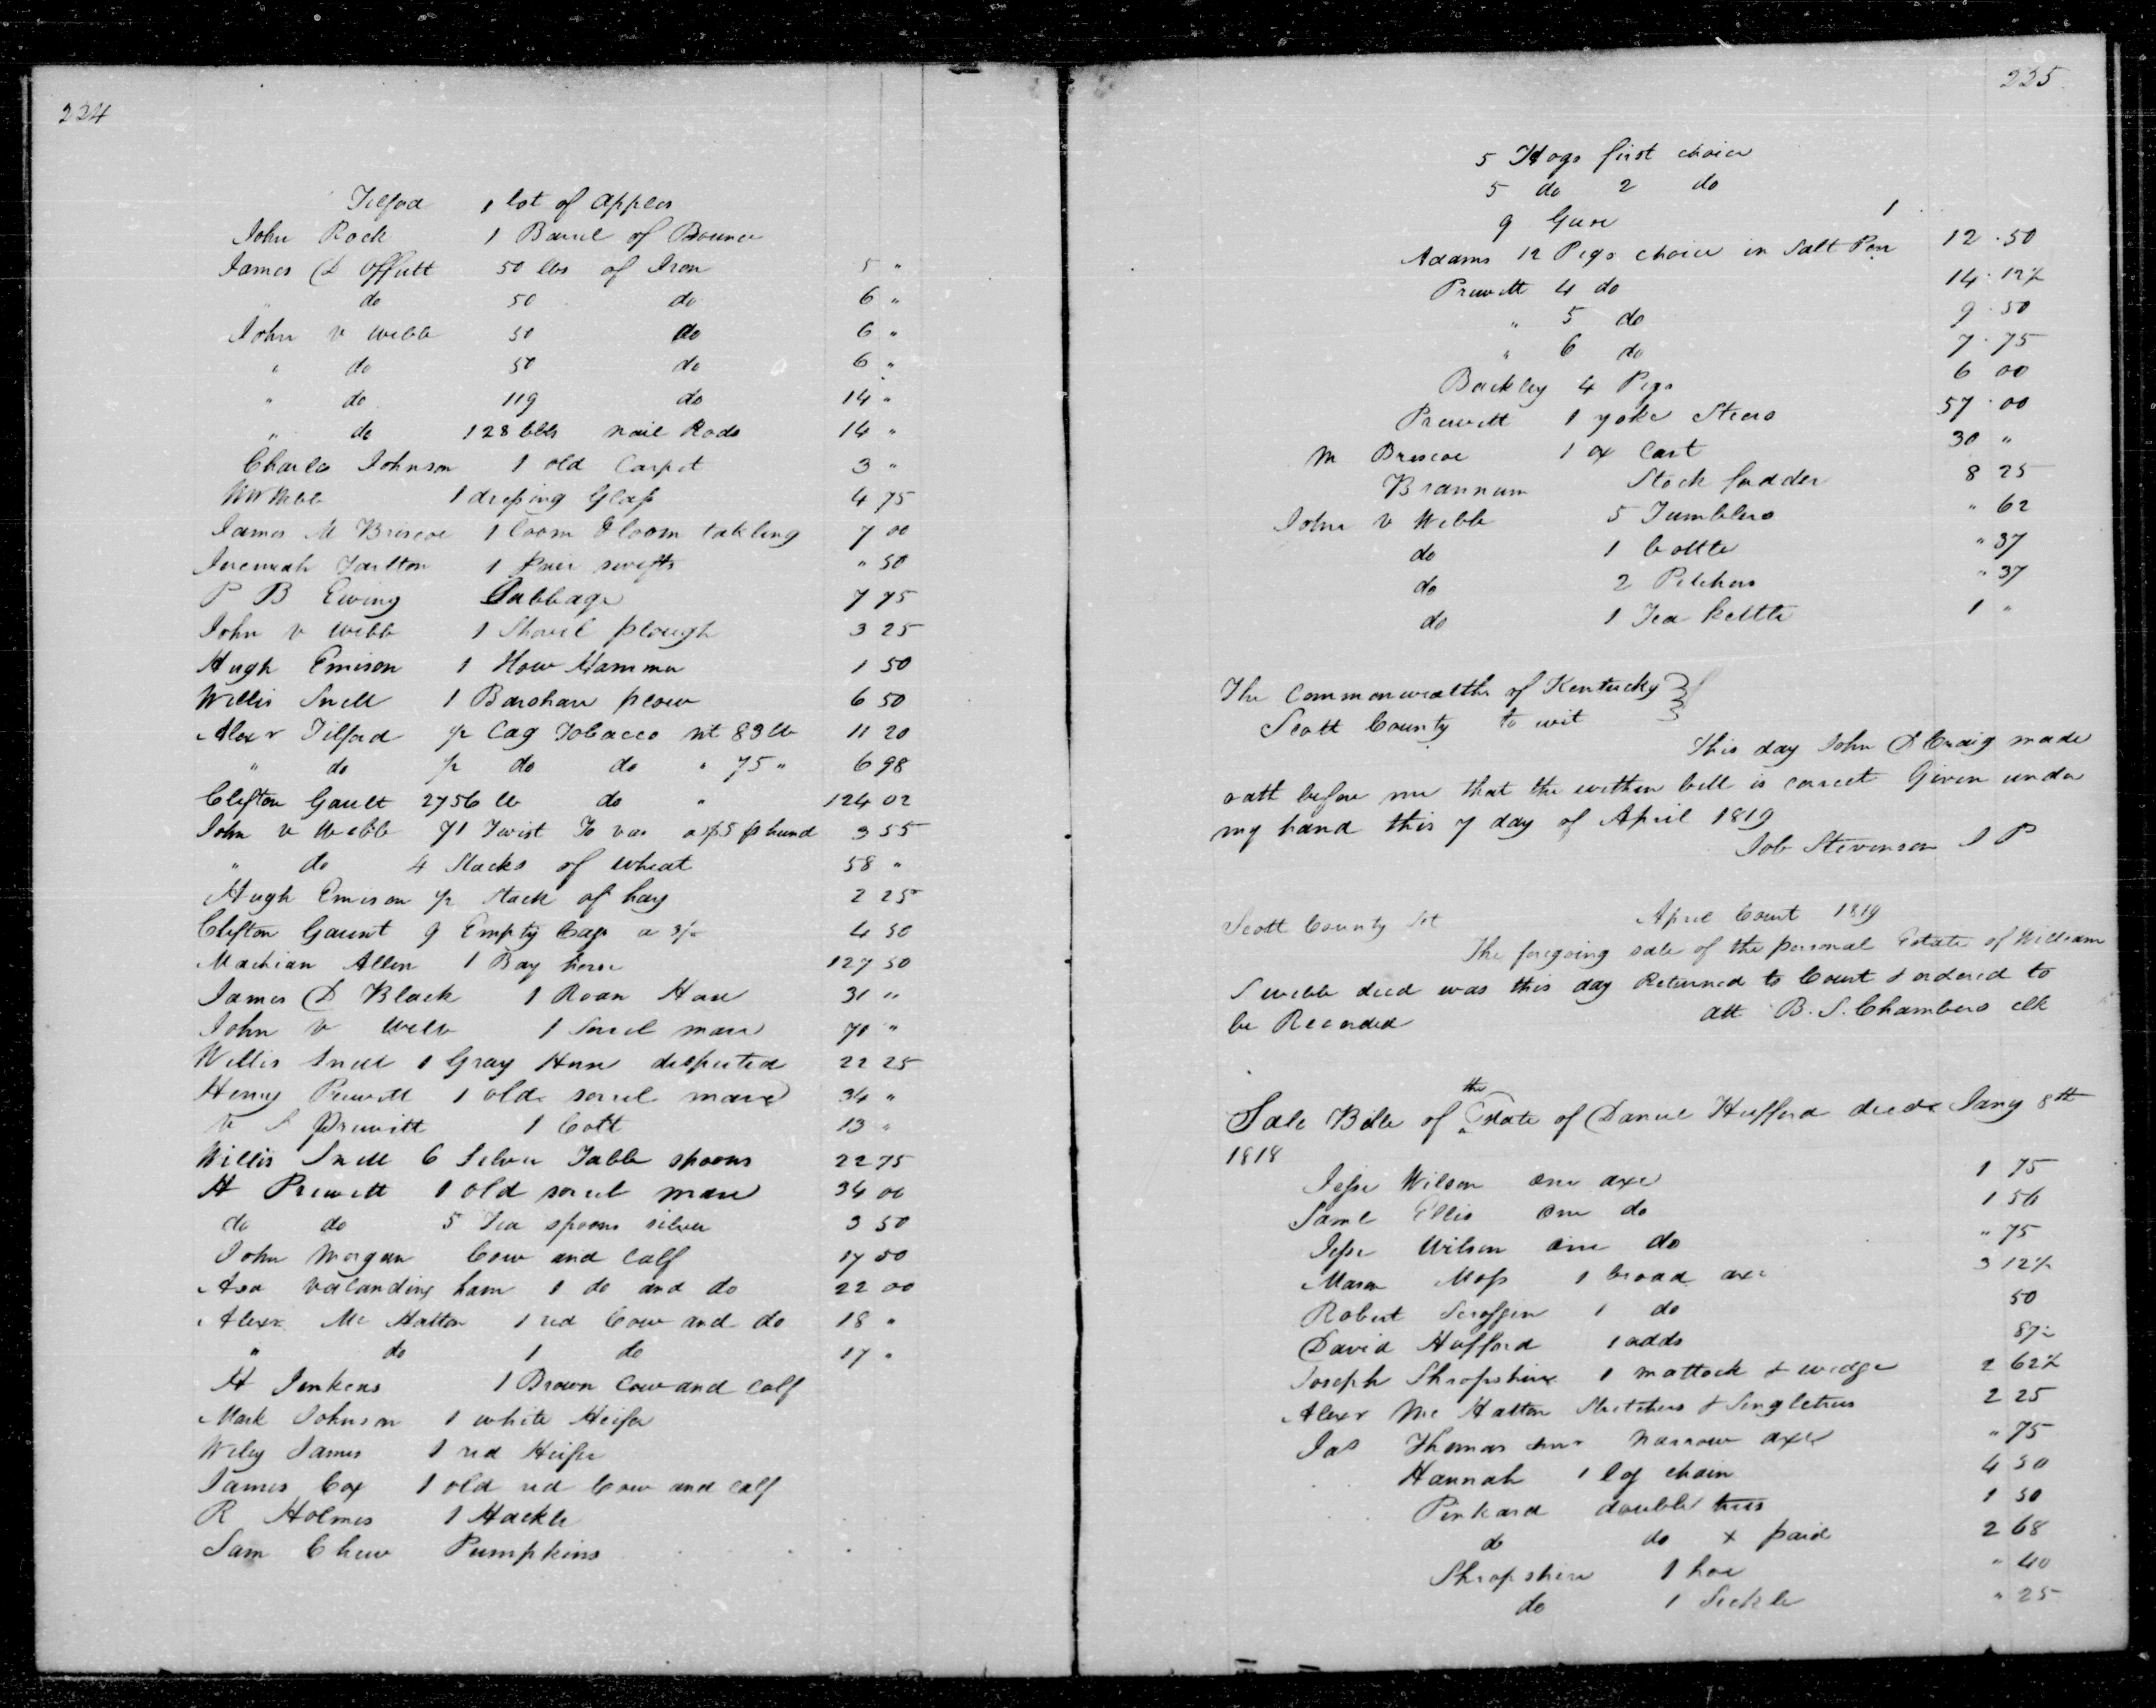 224
Tilford 1 lot of Apples
John Rock 1 Barrel of Bounce
James D Offutt 50 lbs of Iron 5 "
" do 50 do 6 "
John v Webb 50 do 6 "
" do 50 do 6 "
" do 119 do 14 "
" do 128 lbs nail Rods 14 "
Charles Johnson 1 old Carpet 3 "
1 dressing Glass 4 75
James M Briscoe 1 loom & loom takling 7 00
Jeremiah Tarlton 1 pair swifts " 50
P B Ewing Cabbage 7 75
John v Webb 1 Shovel plough 3 25
Hugh Emison 1 How Hammer 1 50
Willis Snell 1 Barshare plow 6 50
Alexr Tilford pr Cag Tobacco nt 83 lb 11 20
" do pr do do " 75 " 6 98
Clifton Gault 2756 lb do " 124 02
John v Webb 71 Twist To bac a $5 p hund 3 55
" do 4 Stacks of wheat 58 "
Hugh Emison pr stack of hay 2 25
Clifton Gaunt 9 Empty Cags a 3/- 4 50
Allen 1 Bay horse 127 50
James D Black 1 Roan Hors 31 "
John v Webb 1 Sorrel mare 70 "
Willis Snell 1 Gray Hors desputed 22 25
Henry Prewitt 1 old sorrel mare 34 "
V S Prewitt 1 Colt 13 "
Willis Snell 6 Silver Table spoons 22 75
H Prewitt 1 old sorrel mare 34 00
do do 5 Tea spoons silver 3 50
John Morgan Cow and Calf 17 50
Asa Valanding ham 1 do and do 22 00
Alexr Mc Hatton 1 red Cow and do 18 "
" do 1 do 17 "
H Jenkens 1 Brown Cow and Calf
Mark Johnson 1 white Heifer
Wiley James 1 red Heifer
James Cox 1 old red Cow and calf
R Holmes 1 Hackle
Sam Chew Pumpkins
225
5 Hogs first choice
5 do 2 do
9 Geese 1
Adams 12 Pigs choice in Salt Pen 12.50
Prewitt 4 do 14.12½
" 5 do 9.50
" 6 do 7.75
Buckley 4 Pigs 6 00
Prewitt 1 yoke Steers 57.00
M Briscoe 1 ox Cart 30 "
Brannum Stock fodder 8 25
John v Webb 5 Tumblers " 62
do 1 bottle " 37
do 2 Pitchers " 37
do 1 Tea kettle 1 "
The Commonwealth of Kentucky
Scott County to wit
This day John D Craig made
oath before me that the within bill is correct Given under
my hand this 7 day of April 1819
Job Stevenson J P
Scott County Sct April Court 1819
The foregoing sale of the personal Estate of William
S webb decd was this day Returned to Court & ordered to
be Recorded att B. S. Chambers clk
Sale Bille of the Estate of Daniel Hufford decd Jany 8th
1818
Jesse Wilson one axe 1 75
Saml Ellis one do 1 56
Jesse Wilson one do " 75
Mason Moss 1 broad axe 3 12½
Robert Scroggin 1 do 50
David Hufford 1 adds 87½
Joseph Shropshire 1 mattock & wedge 2 62½
Alexr Mc Hatton Stretchers & Singletrees 2 25
Jas Thomas one narrow axe " 75
Hannah 1 log chain 4 50
Pinkard double trees 1 50
do do x paid 2 68
Shropshire 1 hoe " 40
do 1 Sickle " 25